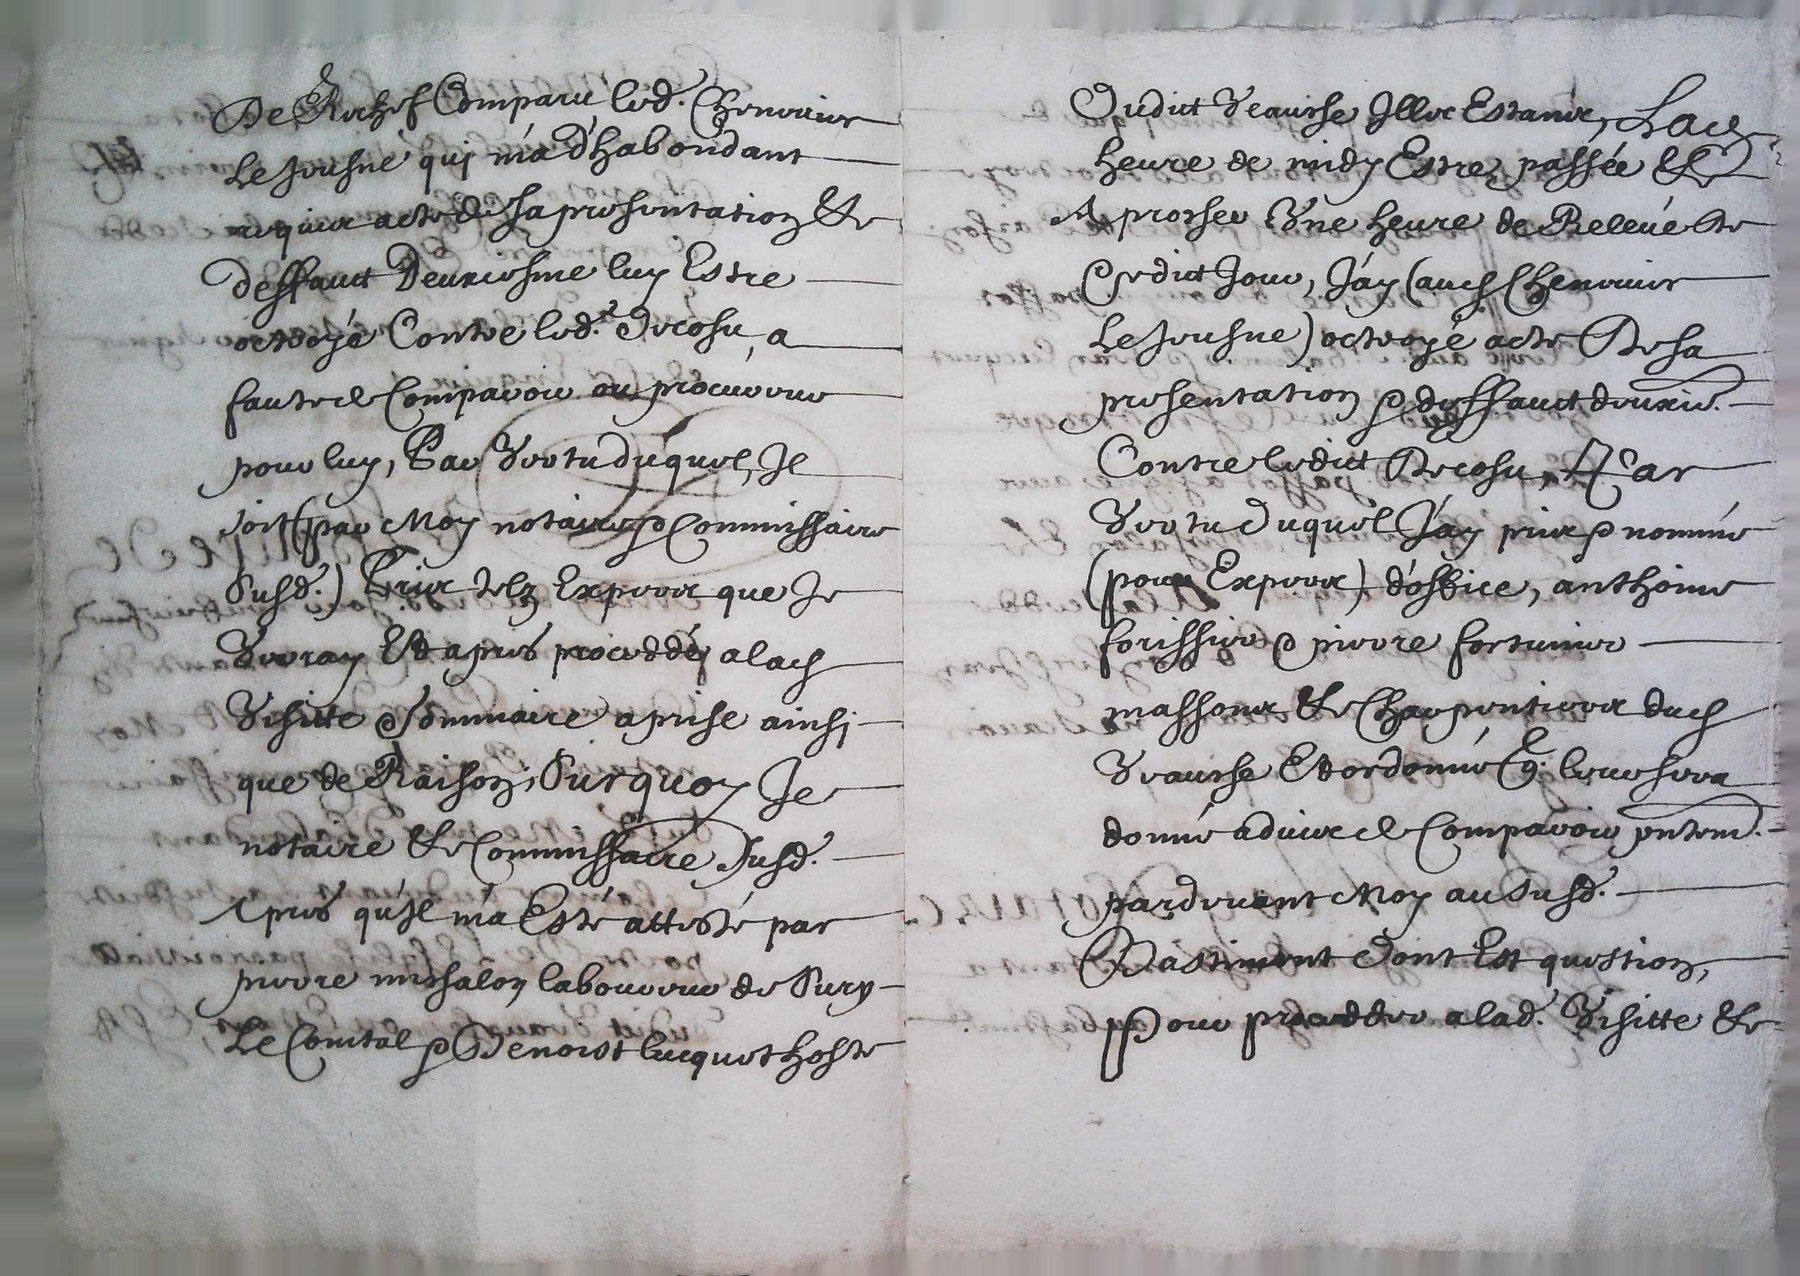 De Rechef Comparu led. Chenevier
Le Jeusne qui m'a d'habondant
requis acte de sa presentation &
deffaut Deuxiesme luy Estre
octroyé Contre led.t Decosu, a
faute de Comparoir ou procureur
pour luy, Par Vertu duquel, Il
soit (par Moy notaire & Commissaire
Susd.) Prins telz Expertz que Je
Verray Et apres proceddé a lad.
Visitte & Sommaire aprise ainsi
que de Raison, Surquoy Je
notaire & Commissaire Susd.
Apres qu'il m'a Esté attesté par
pierre missalon laboureur de Sury
Le Comtal & Benoist lucquet hoste
Dudict Veausse Illec Estantz, Lad.
heure de midy Estre passée &
Aprocher Une heure de Relevée de
Cedict Jour, J'ay (aud. Chenevier
Le Jeusne) octroyé acte De sa
presentation & deffaut deuxie.
Contre ledict Decosu, Par
Vertu duquel J'ay prins & nommé
(pour Expertz) d'office, anthoine
forissier & pierre fortunier
massons & Charpentiers dud.
Veausse Et ordonné q. leur sera
donné advis de Comparoir
pardevant Moy au susd.
Bastiment dont Est question,
Pour procedder a lad. Visitte &